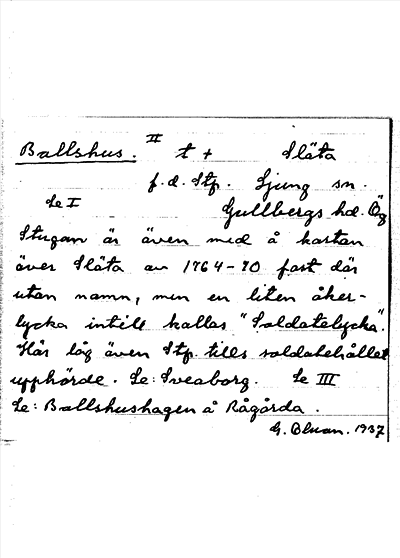 Ballshus. II t + Släta
f.d. Stp. Ljung sn.
Se I Gullbergs hd. Ög
Stugan är även med å kartan
över Släta av 1764-70 fast där
utan namn, men en liten åker-
lycka intill kallas "Soldatelycka".
Här låg även Stp. tills soldatehållet
upphörde. Se: Sveaborg. Se III
Se: Ballshushagen å Rågårda.
G. 1937